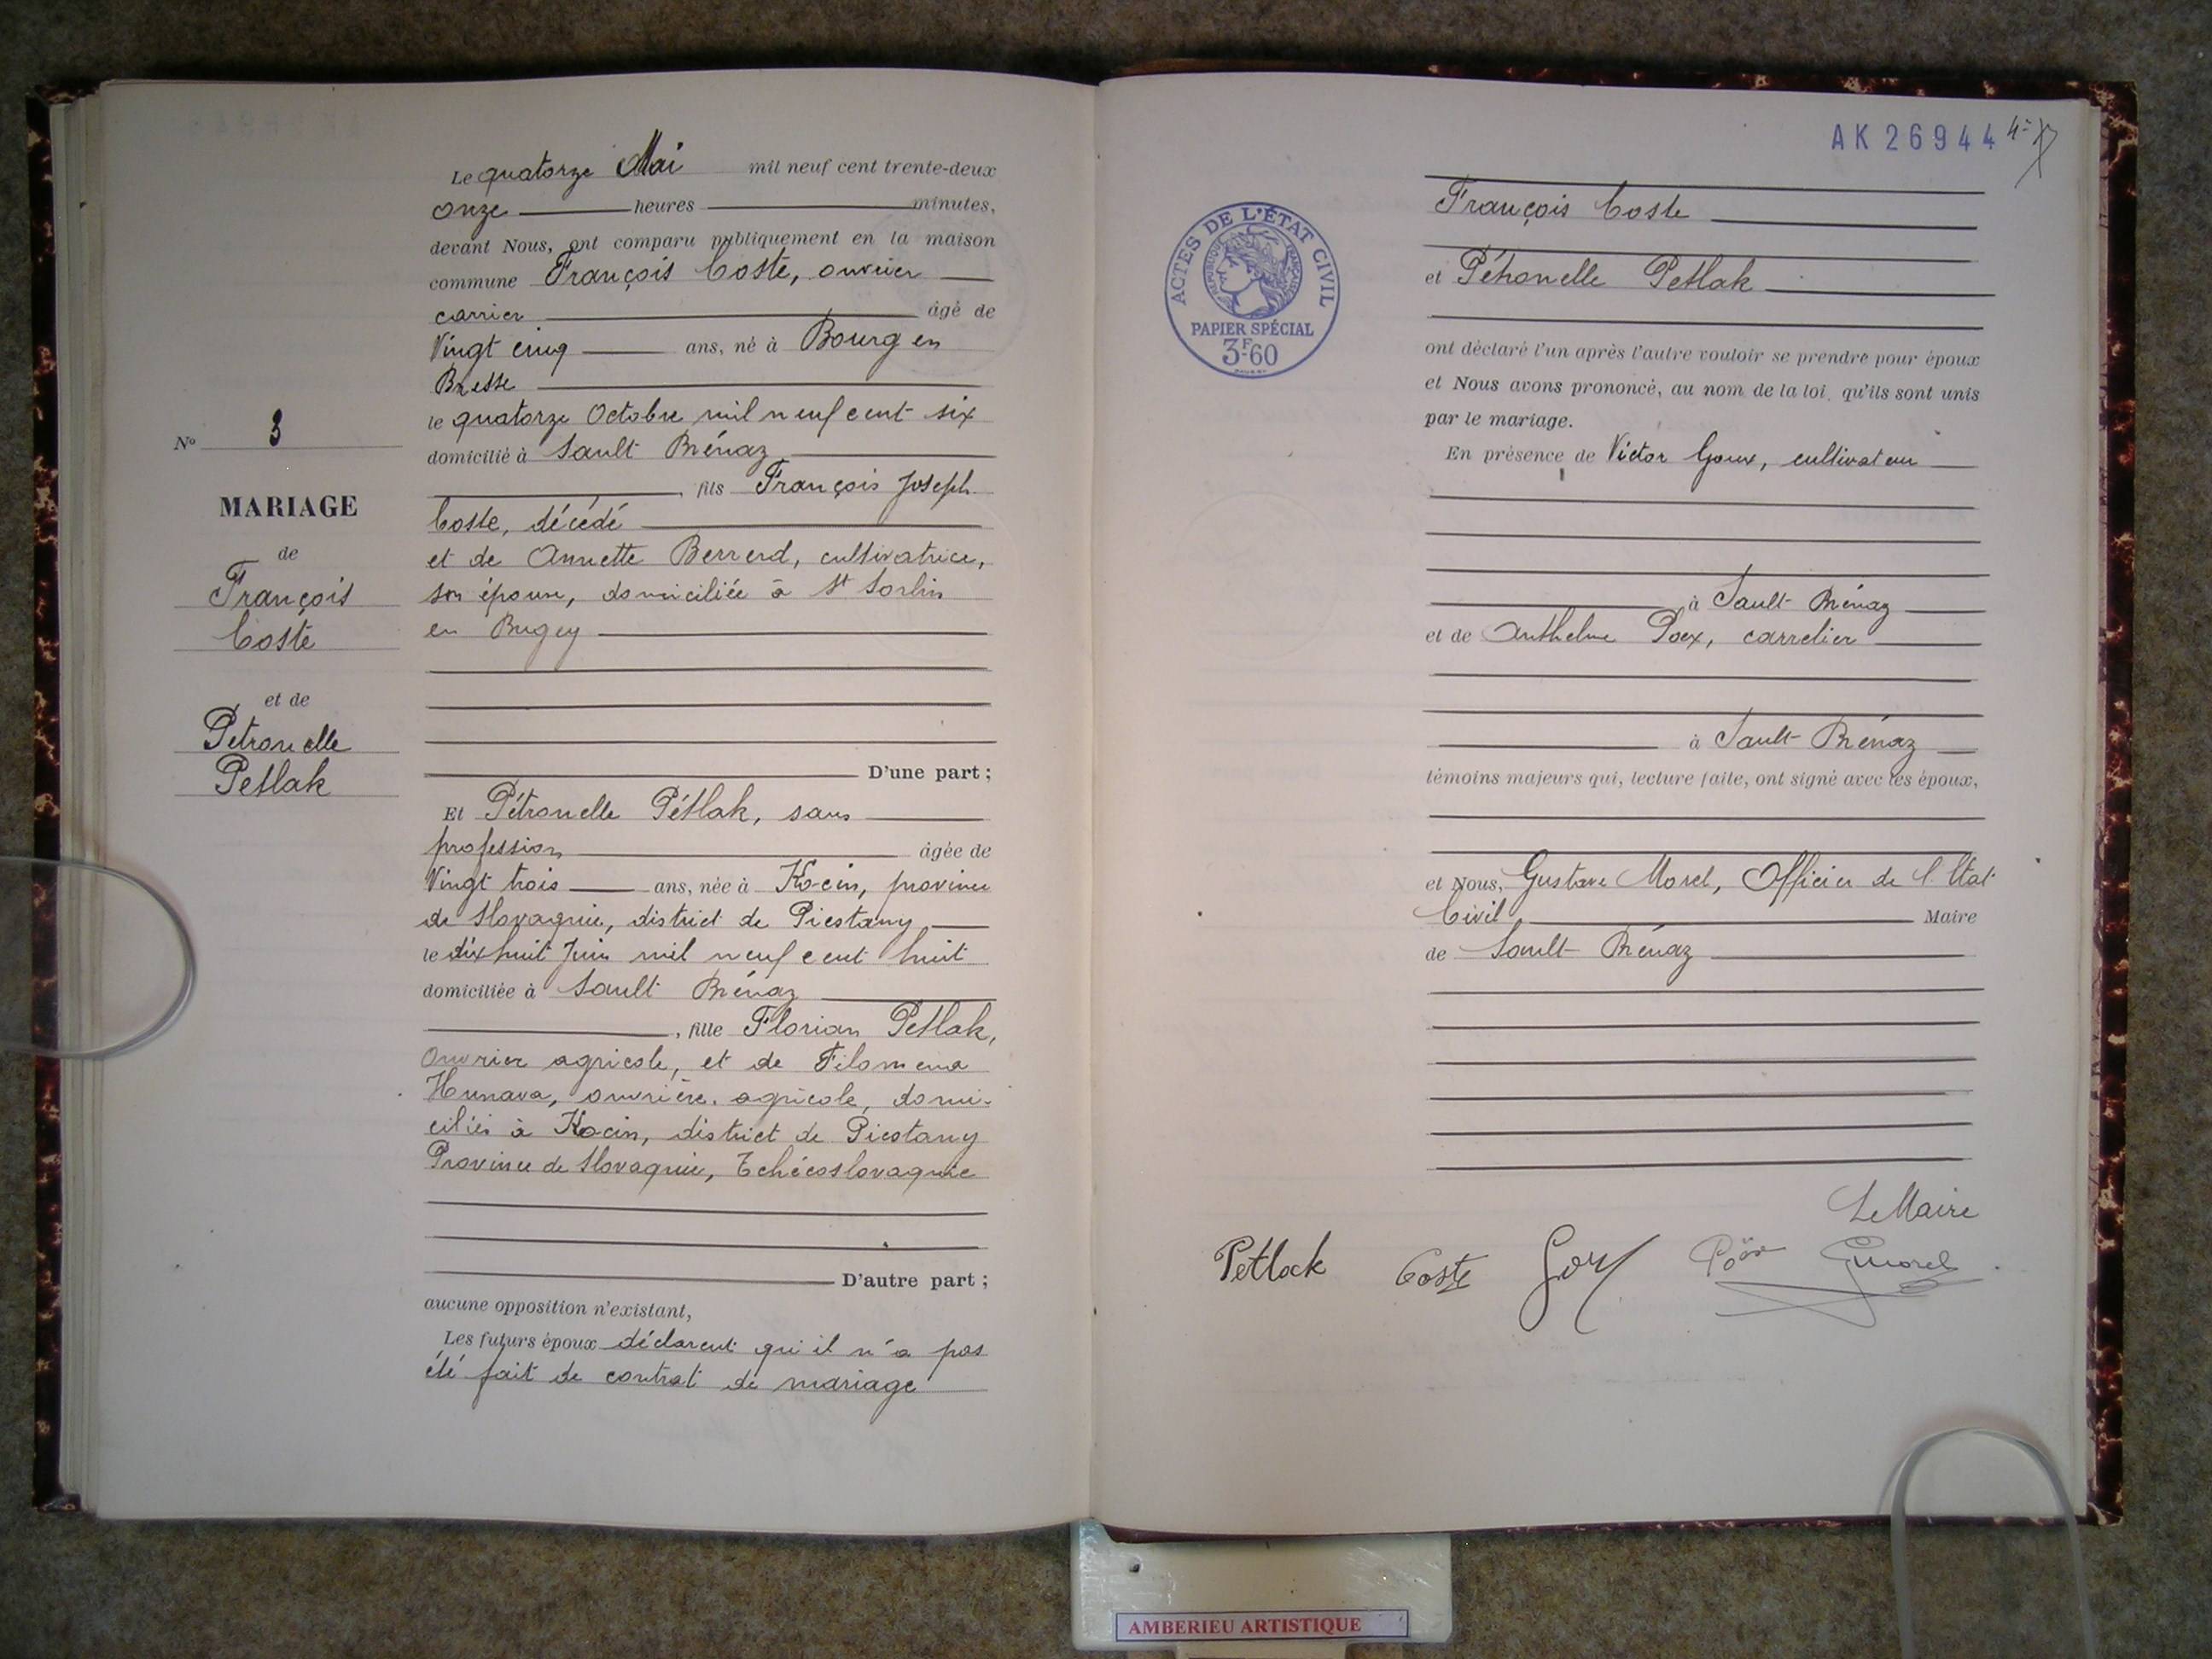 Le quatorze Mai mil neuf cent trente-deux
onze heures minutes,
devant Nous, ont comparu publiquement en la maison
commune François Coste, ouvrier
carrier âgé de
Vingt cinq ans, né à Bourg en
Bresse
le quatorze Octobre mil neuf cent six
domicilié à Sault Brénaz
, fils François Joseph
Coste, décédé
et de Annette Berrerd, cultivatrice,
son épouse, domiciliée à St Sorlin
en Bugey
D'une part ;
Et Pétronelle Pétlak, sans
profession âgée de
Vingt trois ans, née à Kocin, province
de Slovaquie, district de Piestany
le dix huit Juin mil neuf cent huit
domiciliée à Sault Brénaz
, fille Florian Petlak,
Ouvrier agricole, et de Filomena
Hunava, ouvrière agricole, domi-
ciliés à Kocin, district de Piestany
Province de Slovaquie, Tchécoslovaquie
D'autre part ;
aucune opposition n'existant,
Les futurs époux déclarent qu'il n'a pas
été fait de contrat de mariage
No 3
MARIAGE
de
François
Coste
et de
Petronelle
Petlak
AK 26944
ACTES DE L'ÉTAT CIVIL
RÉPUBLIQUE FRANÇAISE
PAPIER SPÉCIAL
3F60
François Coste
et Pétronelle Petlak
ont déclaré l'un après l'autre vouloir se prendre pour époux
et Nous avons prononcé, au nom de la loi, qu'ils sont unis
par le mariage.
En présence de Victor Goux, cultivateur
à Sault Brénaz
et de Anthelme Poex, carrelier
à Sault Brénaz
témoins majeurs qui, lecture faite, ont signé avec les époux,
et Nous, Gustave Morel, Officier de l'Etat
Civil Maire
de Sault Brénaz
Le Maire
Petlack Coste GMorel
AMBERIEU ARTISTIQUE